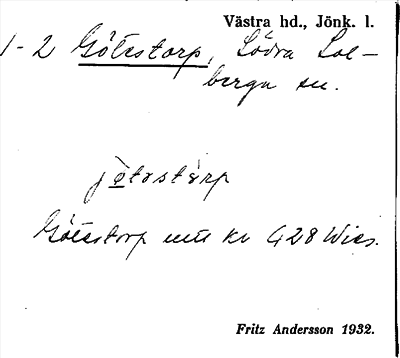 Västra hd., Jönk. l.
1-2 Götestorp, Södra Sol-
berga sn.
jötostàrp
Götestorp mtl Kr 428 Wies.
Fritz Andersson 1932.